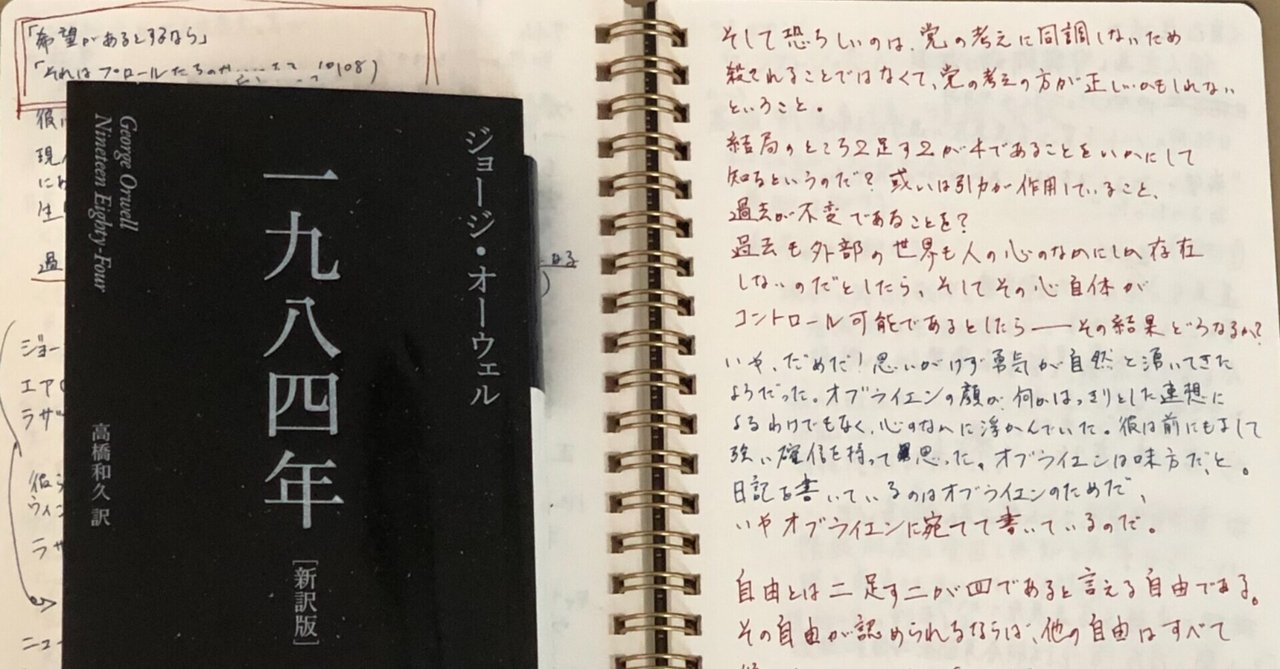 「希望があるとするなら」
「それはプロールたちの
ジョージ・オーウェル
一九八四年
[新訳版]
高橋和久 訳
George Orwell
Nineteen Eighty-Four
そして恐ろしいのは、党の考えに同調しないため
殺されることではなくて、党の考えの方が正しいかもしれない
ということ。
結局のところ2足す2が4であることをいかにして
知るというのだ?或いは引力が作用していること、
過去が不変であることを?
過去も外部の世界も人の心のなかにしか存在
しないのだとしたら、そしてその心自体が
コントロール可能であるとしたら――その結果どうなるか?
いや、だめだ!思いがけず勇気が自然と湧いてきた
ようだった。オブライエンの顔が、何かはっきりとした連想に
よるわけでもなく、心のなかに浮かんでいた。彼は前にもまして
強い確信を持って思った。オブライエンは味方だ、と。
日記を書いているのはオブライエンのためだ、
いやオブライエンに宛てて書いているのだ。
自由とは二足す二が四であると言える自由である。
その自由が認められるならば、他の自由はすべて